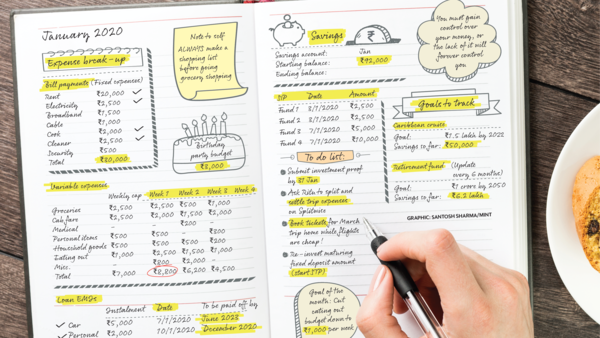 January 2020
Expense break-up
Bill payments (Fixed expenses)
Rent ₹20,000
Electricity ₹2,500
Broadband ₹1,500
Cable ₹1,000
Cook ₹2,000
Cleaner ₹2,500
Security ₹500
Total ₹30,000
Note to self
ALWAYS make a
shopping list
before going
grocery shopping
Birthday
party budget
₹8,000
Variable expenses
Weekly cap Week 1 Week 2 Week 3 Week 4
Groceries ₹2,500 ₹2,500 ₹1,000
Cab fare ₹2,500 ₹2,000 ₹1,500
Medical - - ₹200 -
Personal items ₹500 ₹500 - -
Household goods ₹500 ₹500 ₹500
Eating out ₹1,000 ₹2,500 ₹1,500 ₹1,000
Misc. ₹800 ₹2,000
Total ₹7,000 ₹8,800 ₹6,200 ₹4,500
Loan EMIs
Instalment Date To be paid off by
Car ₹5,000 7/1/2020 June 2023
Personal ₹2,000 10/1/2020 December 2020
Savings
₹
Savings account: Jan
Starting balance: ₹92,000
Ending balance:
You must gain
control over
your money, or
the lack of it will
forever control
you
SIP Date Amount
Fund 1 3/1/2020 ₹2,500
Fund 2 3/1/2020 ₹2,500
Fund 3 7/1/2020 ₹5,000
Fund 4 7/1/2020 ₹10,000
To do list:
Submit investment proof
by 31 Jan
Ask Ritu to split and
settle trip expenses
on Splitwise
Book tickets for March
trip home while flights
are cheap!
Re-invest maturing
fixed deposit amount
(start STP)
Goal of the
month: Cut
eating out
budget down to
₹1,000 per week
Goals to track
Caribbean cruise
Goal: ₹1.5 lakh by 2023
Savings so far: ₹50,000
Retirement fund (Update
every 6 months)
Goal: ₹1 crore by 2050
Savings so far: ₹6.2 lakh
GRAPHIC: SANTOSH SHARMA/MINT